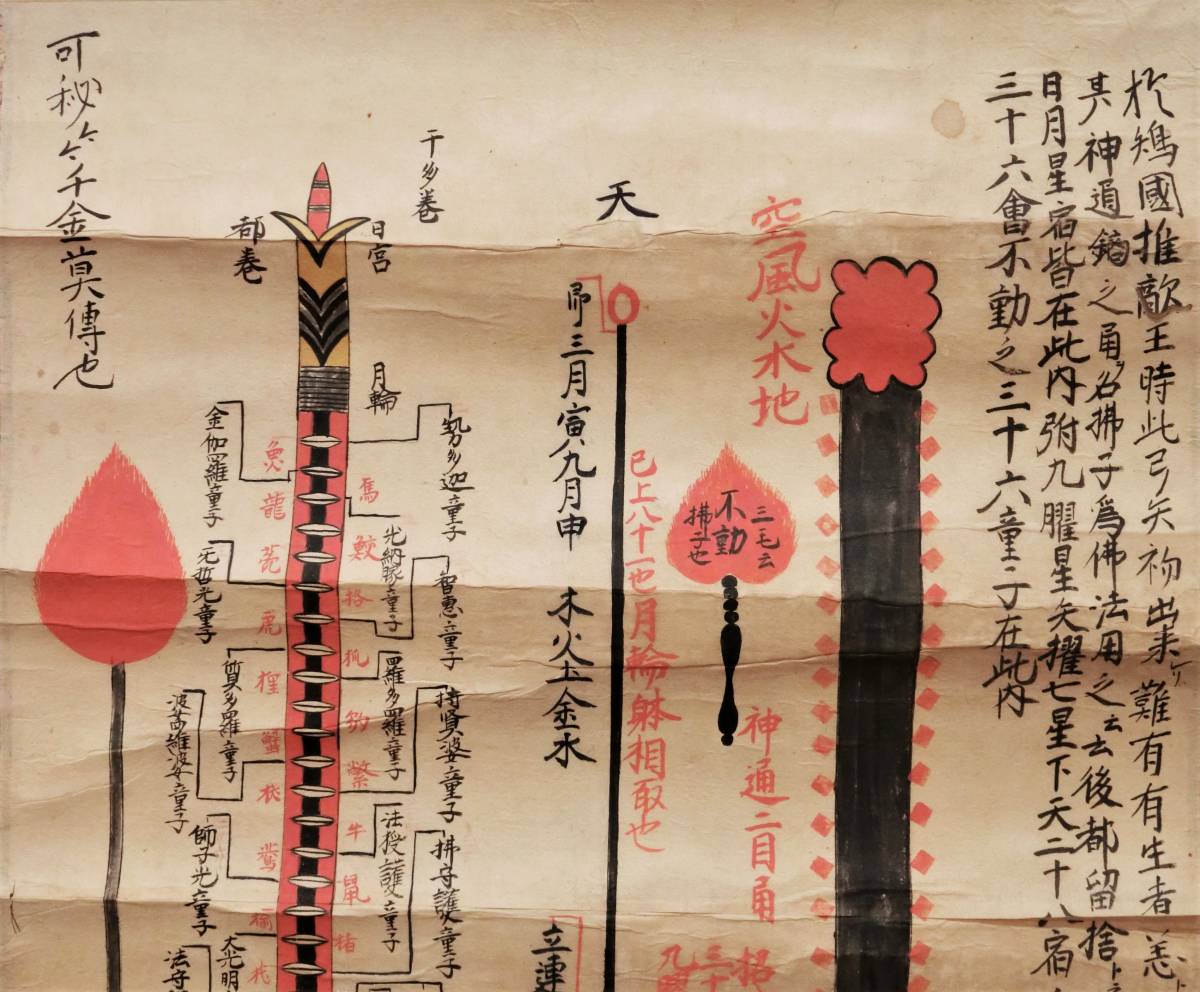 於鳩國推敵王時此弓矢祢出来ケリ難有有生者恙
其神通鏑之甬名拂子為佛法用之云云後都留捨
日月星宿皆在此内弣九曜星矢擢七星下天二十八宿
三十六會不動之三十六童子在此内
空風火水地
三毛云
不動
拂子也
神通二目甬
天
已上八十一也月輪躰相取也
三月寅九月申 木火土金水
立連
干多巻
日宮
都巻
月輪
勢多迦童子
光納豚童子
智惠童子
羅多羅童子
持賢婆童子
法授護童子
拂守護童子
馬
鮫
格
狐
牛
鼠
猪
魚
龍
虎
鹿
狸
蟹
鴦
金伽羅童子
无哲光童子
質多羅童子
波羅婆童子
師子光童子
大光明
法守
可秘々千金莫傳也